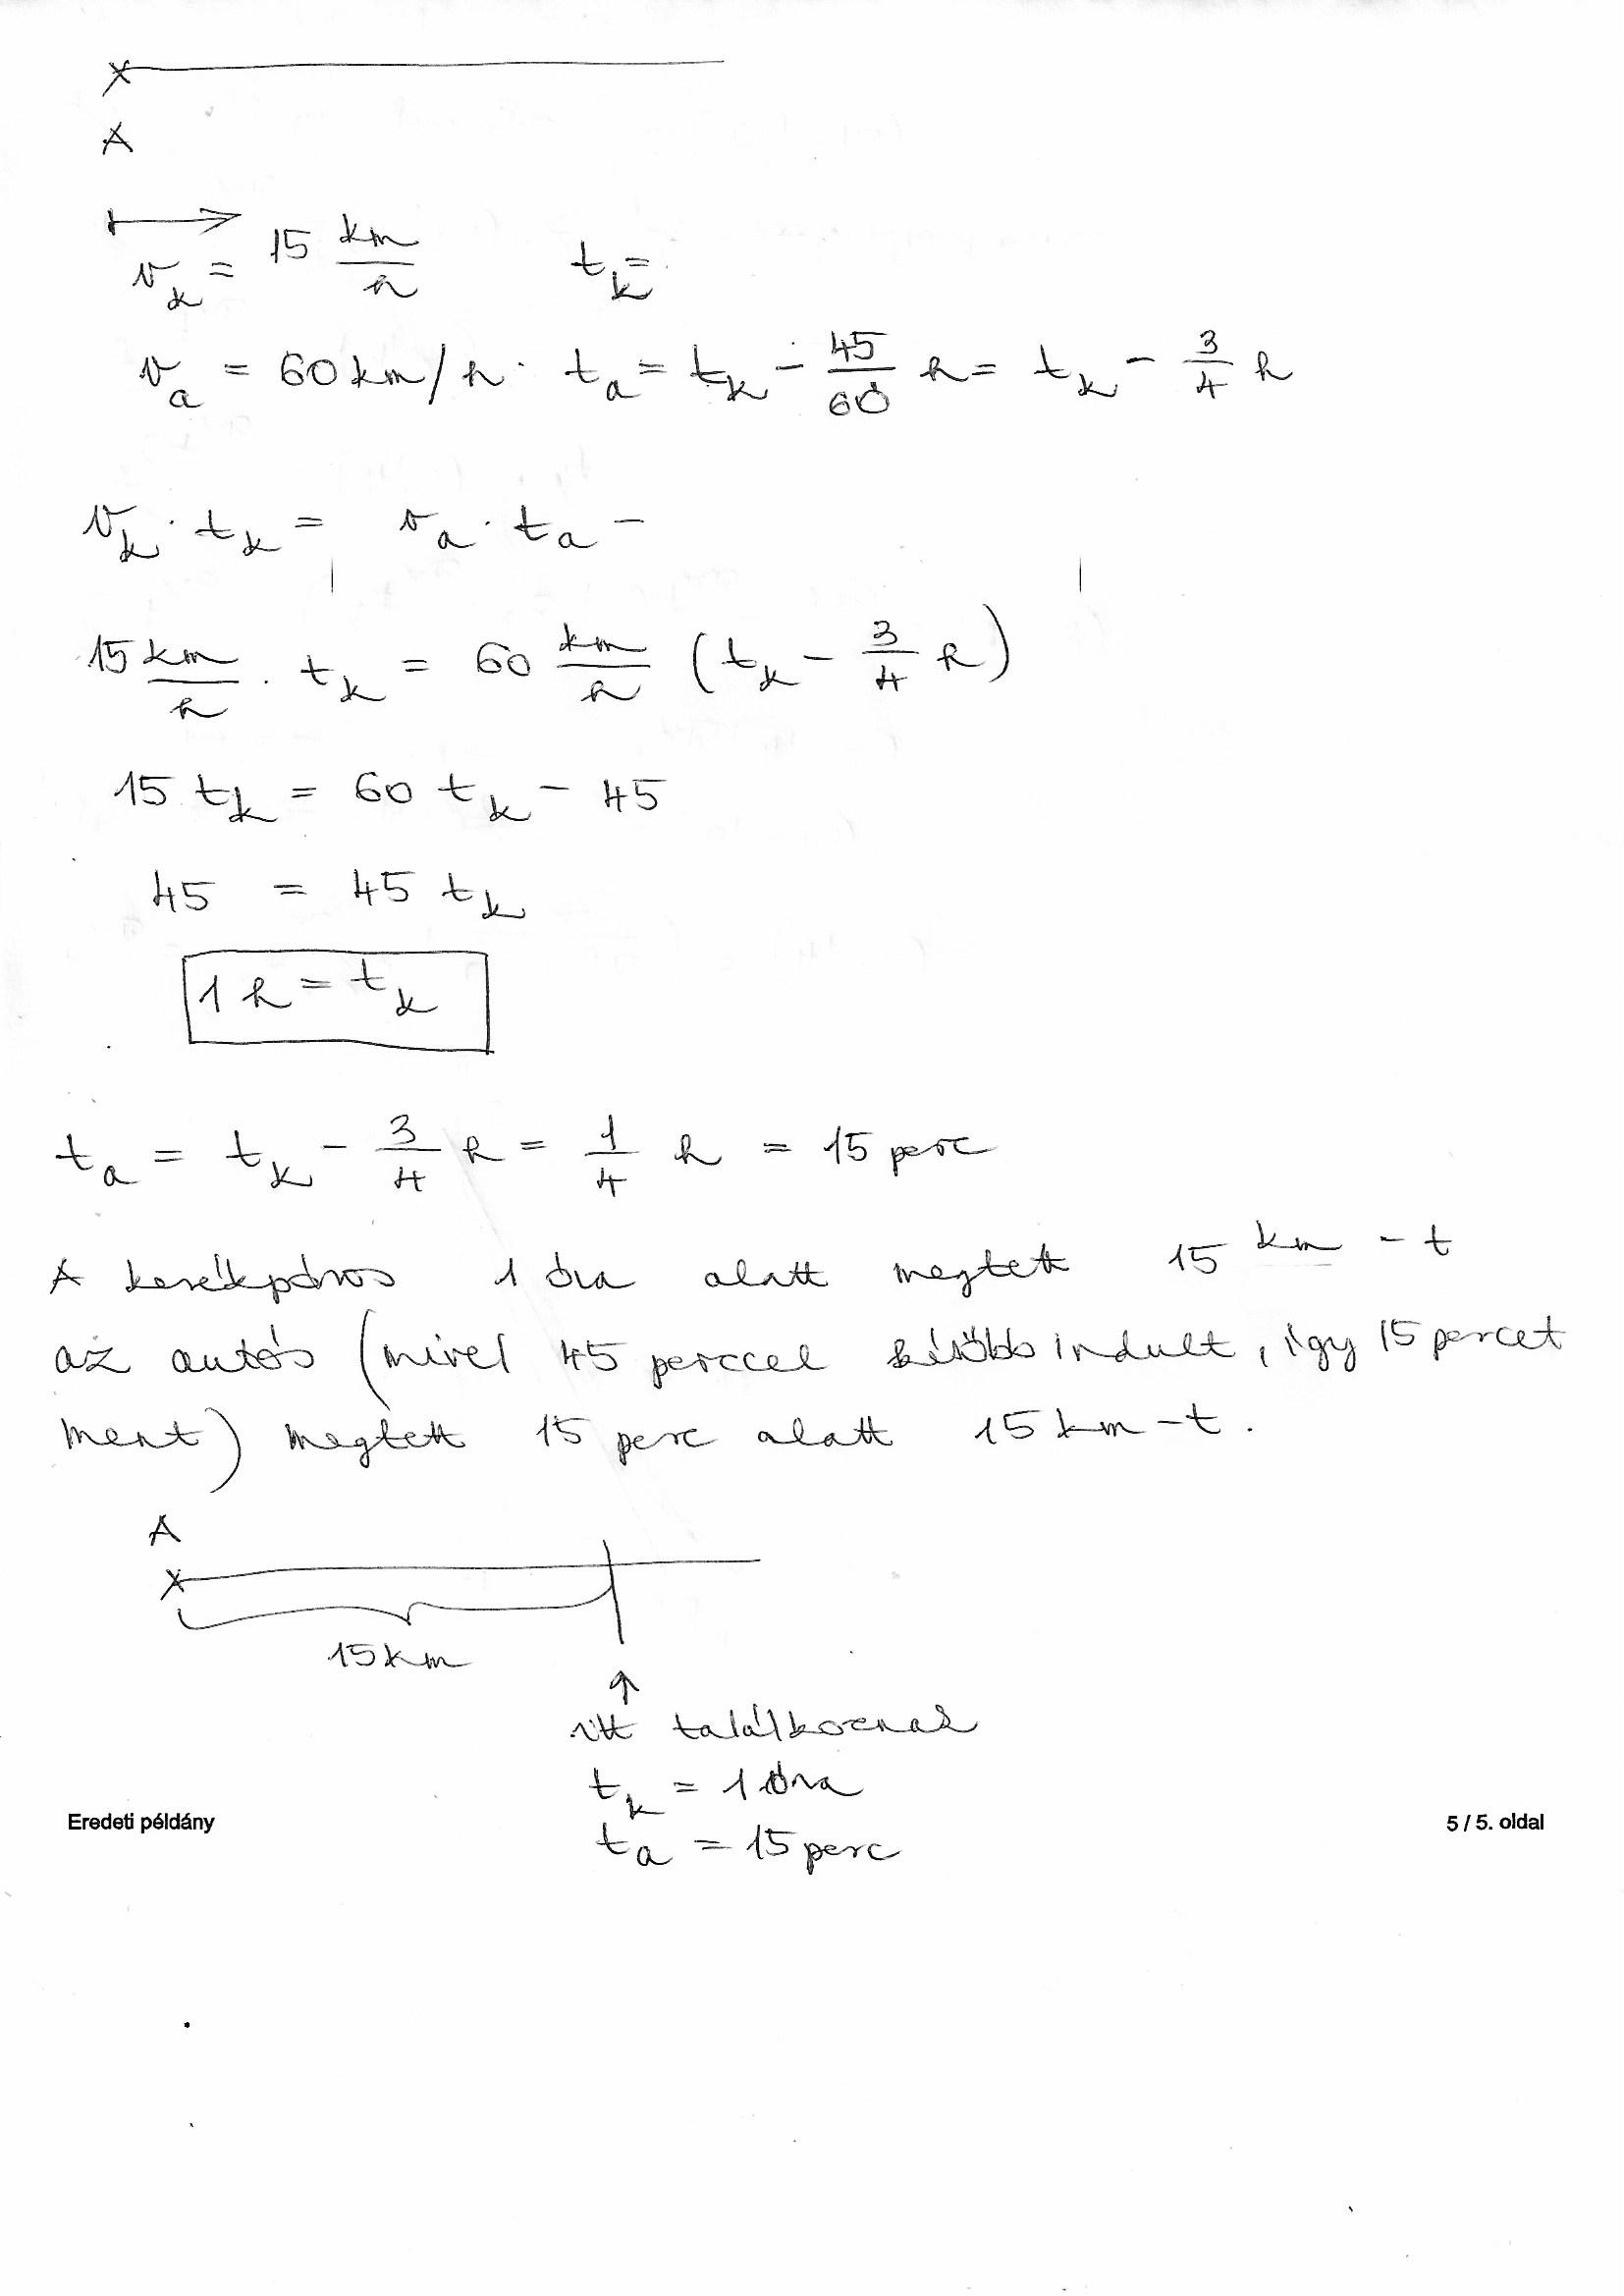 A
v_k = 15 km/h t_k =
v_a = 60 km/h · t_a = t_k - 45/60 h = t_k - 3/4 h
v_k · t_k = v_a · t_a -
15 km/h · t_k = 60 km/h (t_k - 3/4 h)
15 t_k = 60 t_k - 45
45 = 45 t_k
1 h = t_k
t_a = t_k - 3/4 h = 1/4 h = 15 perc
A kerékpáros 1 óra alatt megtett 15 km - t
az autós (mivel 45 perccel később indult, így 15 percet
ment) megtett 15 perc alatt 15 km - t.
A
15 km
↑
itt találkoznak
t_k = 1 óra
Eredeti példány 5 / 5. oldal
t_a = 15 perc